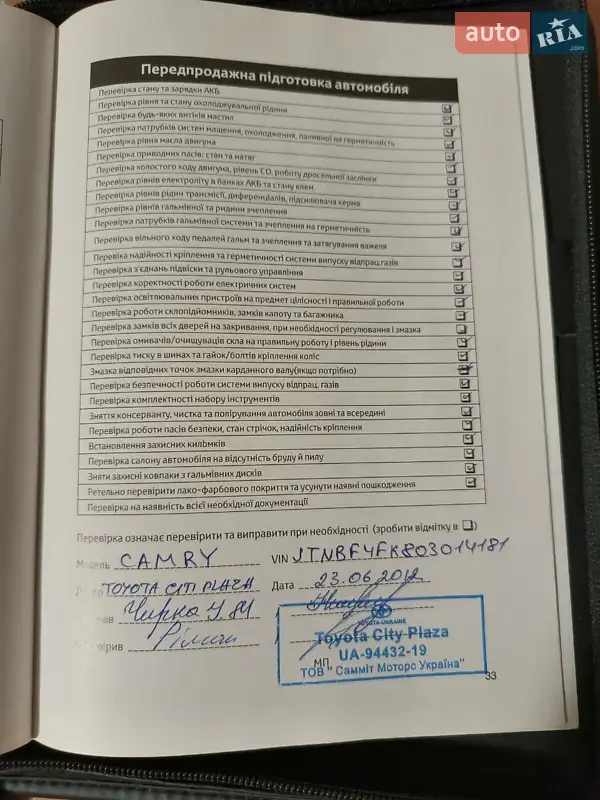 auto RIA .com
Передпродажна підготовка автомобіля
Перевірка стану та зарядки АКБ
Перевірка рівня та стану охолоджувальної рідини
Перевірка будь-яких витіків мастил
Перевірка патрубків систем мащення, охолодження, паливної на герметичність
Перевірка рівня масла двигуна
Перевірка приводних пасів: стан та натяг
Перевірка холостого ходу двигуна, рівень СО, роботу дросельної заслінки
Перевірка рівнів електроліту в банках АКБ та стану клем
Перевірка рівнів рідин трансмісії, диференціалів, підсилювача керма
Перевірка рівнів гальмівної та ридини зчеплення
Перевірка патрубків гальмівної системи та зчеплення на герметичність
Перевірка вільного ходу педалей гальм та зчеплення та затягування важеля
Перевіка надійності кріплення та герметичності системи випуску відпрац.газів
Перевірка з'єднань підвіски та рульового управління
Перевірка коректності роботи електричних систем
Перевірка освітлювальних пристроїв на предмет цілісності і правильної роботи
Перевірка роботи склопідйомників, замків капоту та багажника
Перевірка замків всіх дверей на закривання, при необхідності регулювання і змазка
Перевірка омивачів/очищуваців скла на правильну роботу і рівень рідини
Перевірка тиску в шинах та гайок/болтів кріплення коліс
Змазка відповідних точок змазки карданного валу(якщо потрібно)
Перевірка безпечності роботи системи випуску відпрац. газів
Перевірка комплектності набору інструментів
Зняття консерванту, чистка та полірування автомобіля зовні та всередині
Перевірка роботи пасів безпеки, стан стрічок, надійність кріплення
Встановлення захисних килімків
Перевірка салону автомобіля на відсутність бруду й пилу
Зняти захисні ковпаки з гальмівних дисків
Ретельно перевірити лако-фарбового покриття та усунути наявні пошкодження
Перевірка на наявність всієї необхідної документації
Перевірка означає перевірити та виправити при необхідності (зробити відмітку в ☐)
Модель CAMRY VIN JTNBF4FK803014181
TOYOTA CITI PLAZA Дата 23.06.2012
TOYOTA-UKRAINE
Toyota City Plaza
UA-94432-19
МП
ТОВ "Самміт Моторс Україна"
33